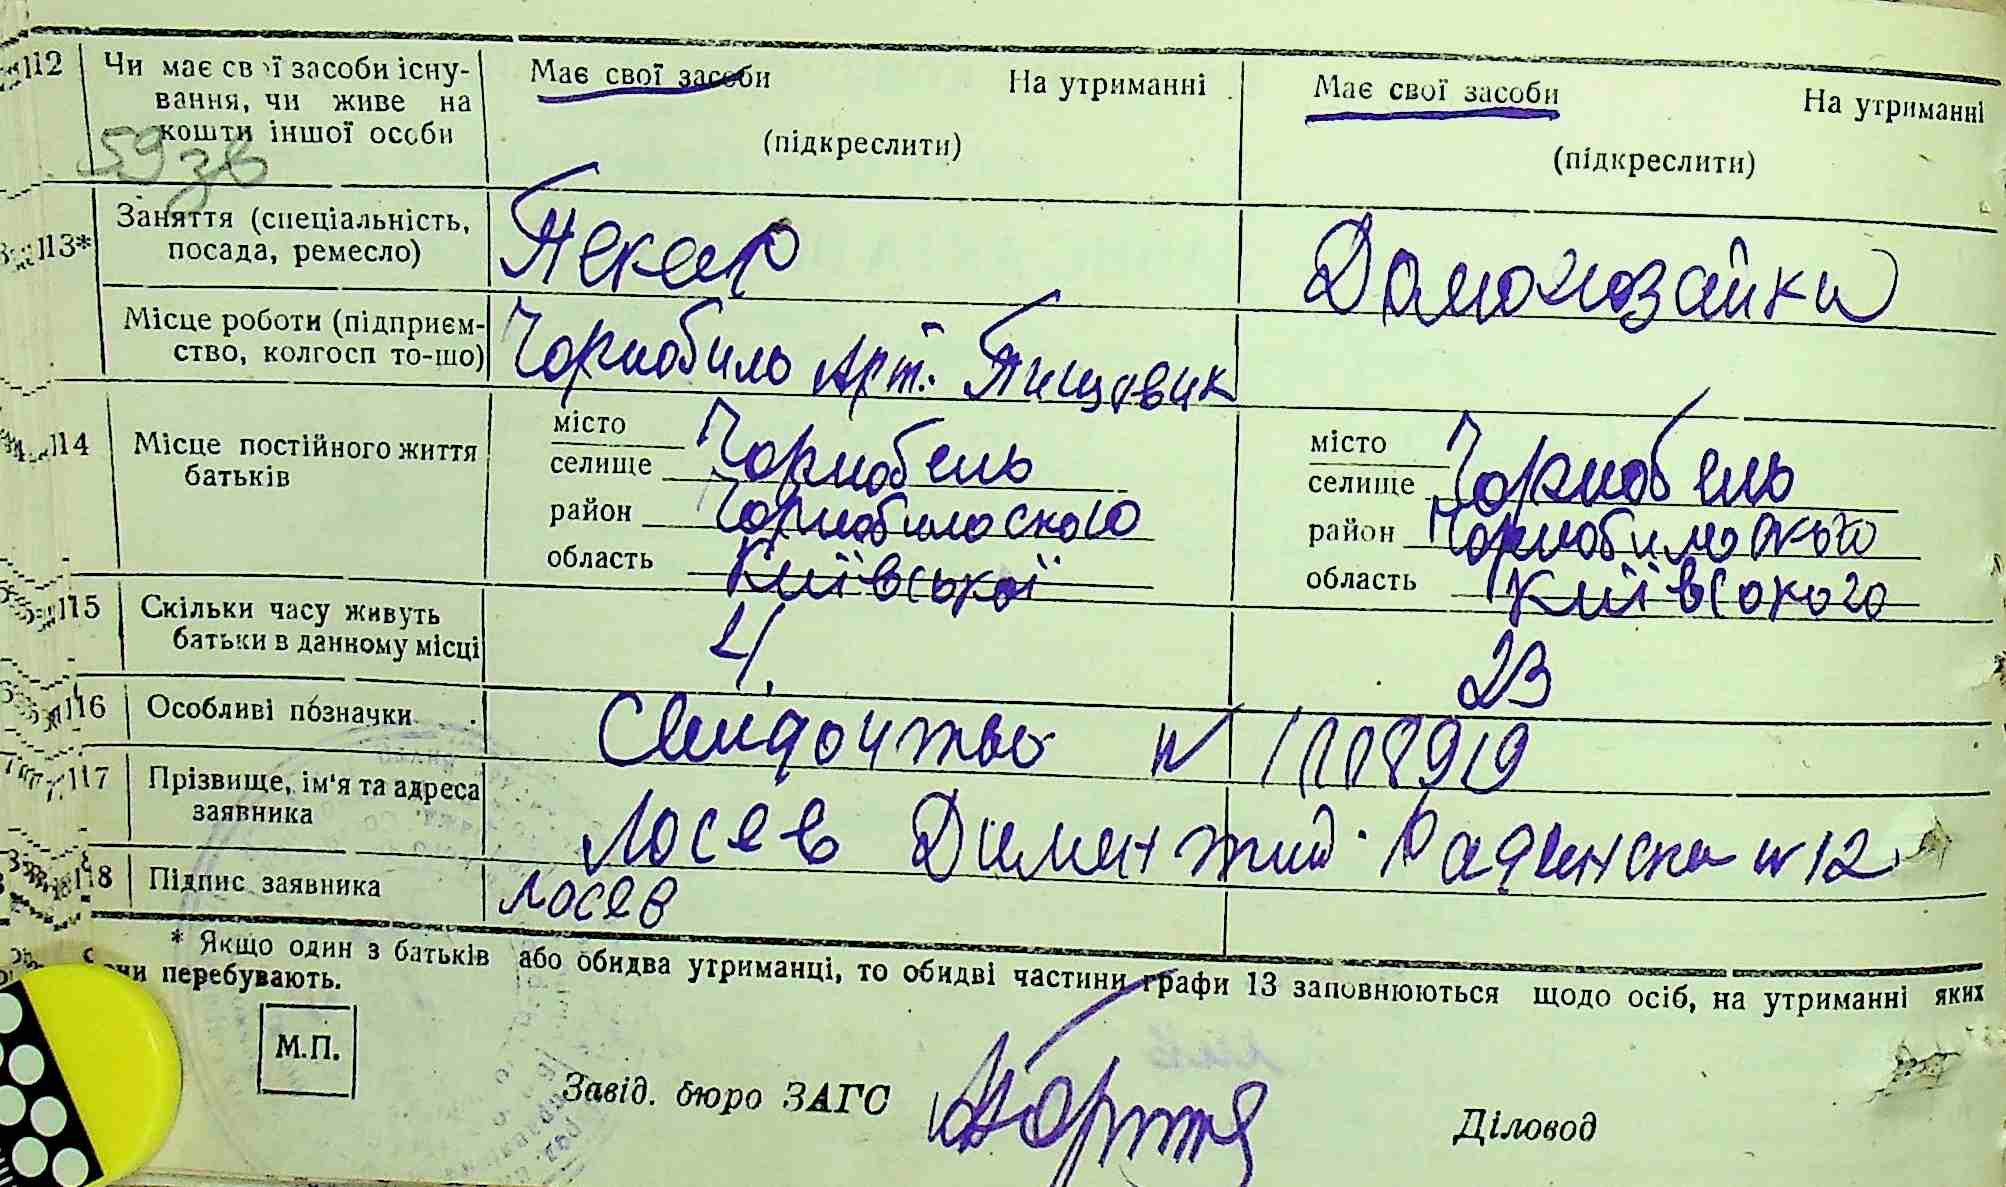 12 Чи має свої засоби існу- Має свої засоби На утриманні Має свої засоби На утриманні
вання, чи живе на
кошти іншої особи (підкреслити) (підкреслити)
59 зв
13* Заняття (спеціальність, Пекар Домохозайки
посада, ремесло)
Місце роботи (підприєм- Чорнобиль Арт. Пищевик
ство, колгосп то-що)
14 Місце постійного життя місто Чорнобель місто Чорнобель
батьків селище селище
район Чорнобилоского район Чорнобилоского
область Київської область Київсокого
15 Скільки часу живуть 4 23
батьки в данному місці
16 Особливі позначки Свидочтво № 1108919
17 Прізвище, ім'я та адреса Лосев Димент Радянска № 12
заявника
18 Підпис заявника Лосев
* Якщо один з батьків або обидва утриманці, то обидві частини графи 13 заповнюються щодо осіб, на утриманні яких
перебувають.
М.П.
Завід. бюро ЗАГС Діловод